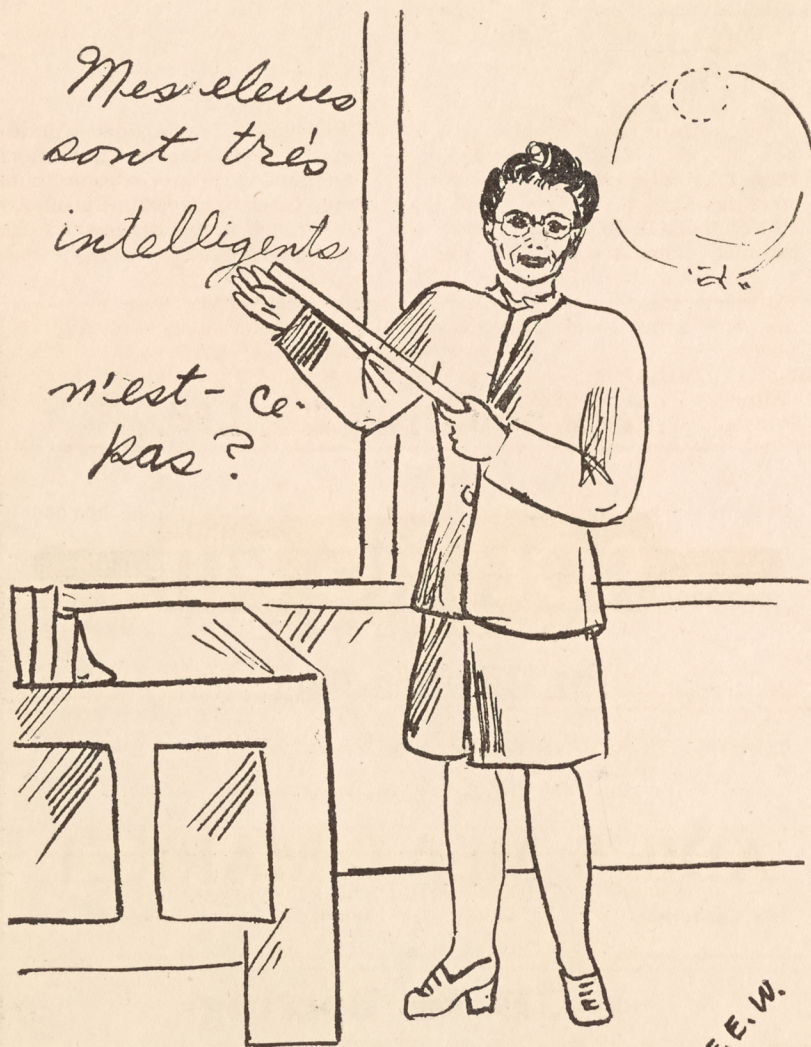 Mes eleves
sont trés
intelligents
n'est-ce-
pas?
"a"
E.E.W.